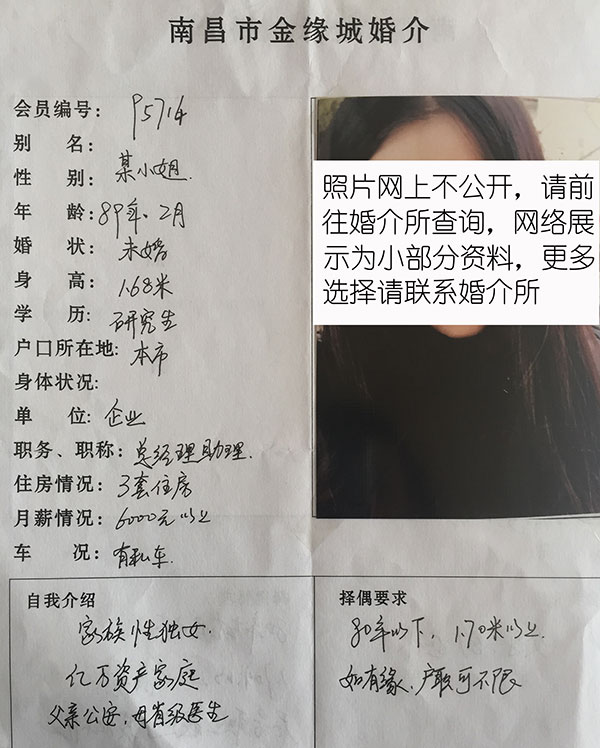 南昌市金缘城婚介
会员编号: 95714
别 名:
性 别: 某小姐.
年 龄: 89年.2月
婚 状: 未婚
身 高: 1.68米
学 历: 研究生
户口所在地: 本市
身体状况:
单 位: 企业
职务、职称: 总经理助理.
住房情况: 3套住房
月薪情况: 6000元以上
车 况: 有私车.
照片网上不公开，请前
往婚介所查询，网络展
示为小部分资料，更多
选择请联系婚介所
自我介绍
家族性独女.
亿万资产家庭
父亲公安，母省级医生
择偶要求
80年以下，1.70米以上.
如有缘，产业可不限